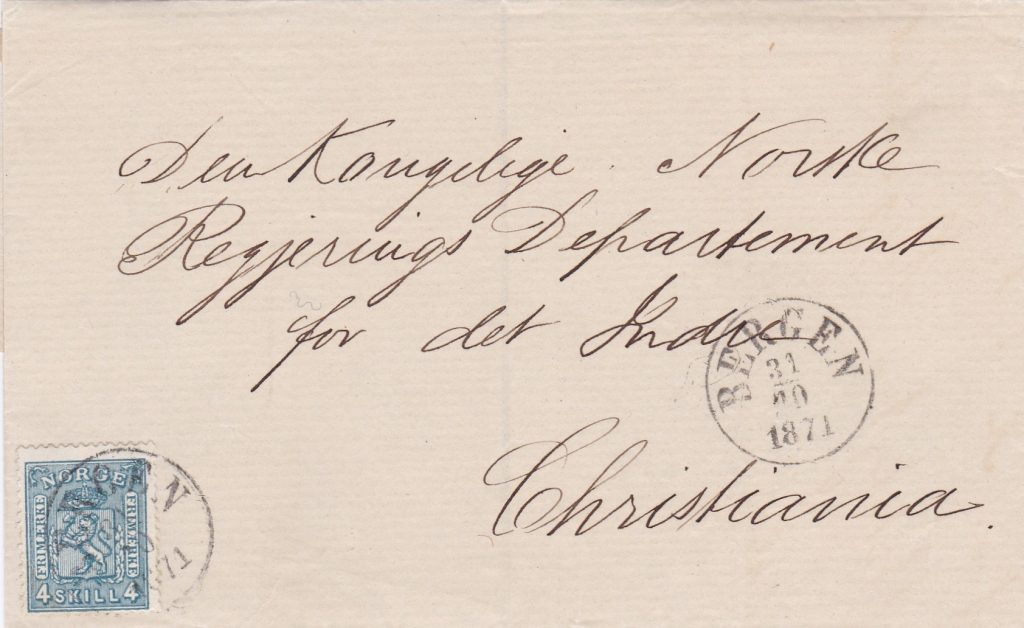 Den Kongelige Norske
Regjerings Departement
for det Indre
Christiania.
BERGEN
31
10
1871
NORGE
FRIMERKE
FRIMERKE
4 SKILL 4
BERGEN
10
1871